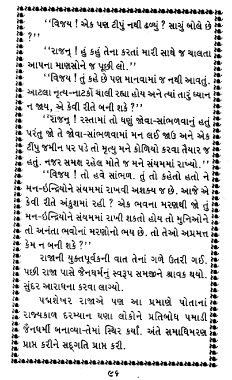 "વિજય ! એક પણ ટીપું નથી ઢળ્યું ? સાચું બોલે છે
?"
"રાજન્ ! હું કહું તેના કરતાં મારી સાથે જ ચાલતા
આપના માણસોને જ પૂછી લો."
"વિજય ! તું કહે છે પણ માનવામાં જ નથી આવતું.
આટલા નૃત્ય-નાટકો ચાલી રહ્યા હોય અને ત્યાં તારું ધ્યાન
ન જાય, એ કેવી રીતે બની શકે ?"
"રાજન્ ! રસ્તામાં તો ઘણું જોવા-સાંભળવાનું હતું
પરંતુ જો તે જોવા-સાંભળવામાં મન લઈ જાઉં અને એક
ટીપું જમીન પર પડે તો મૃત્યુ મને કોળિયો કરવા તૈયાર જ
હતું. નજર સમક્ષ રહેલ મોતે જ મને સંયમમાં રાખ્યો."
"વિજય ! તો હવે સાંભળ. તું તો કહેતો હતો ને
મન-ઇન્દ્રિયોને સંયમમાં રાખવી અશક્ય જ છે. આજે એ
કેવી રીતે અંકુશમાં રહી ? એક ભવના મરણથી જો તું
મન-ઇન્દ્રિયોને સંયમમાં રાખી શકતો હોય તો મુનિઓને
તો અનંતા ભવોનાં મરણોનો ભય છે. તો તેઓ અપ્રમત્ત
કેમ ન બની શકે ?"
રાજાની યુક્તપૂર્વકની વાત તેનાં ગળે ઉતરી ગઈ.
પછી રાજા પાસે જૈનધર્મનું સ્વરૂપ સમજીને શ્રાવક થયો.
સુંદર આરાધના કરવા લાગ્યો.
પદ્મશેખર રાજાએ પણ આ પ્રમાણે પોતાનાં
રાજ્યકાળ દરમ્યાન ઘણા લોકોને પ્રતિબોધ પમાડી
જૈનધર્મી બનાવ્યા-તેમાં સ્થિર કર્યાં. અંતે સમાધિમરણ
પ્રાપ્ત કરીને સદ્ગતિ પ્રાપ્ત કરી.
૯૬